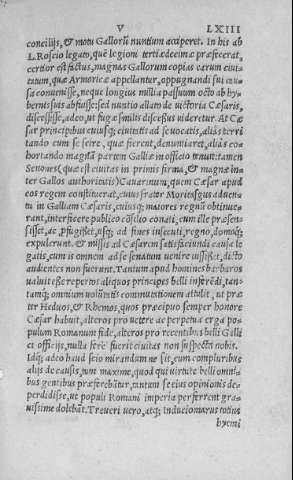 V LXIII
concilijs, & motu Gallorũ nuntium acciperet. In his ab
L. Roscio legato, quẽ legioni tertiædecimæ præfecerat,
certior est factus, magnas Gallorum copias earum ciui-
tatum, quæ Armoricæ appellantur, oppugnandi sui cau-
sa conuenisse, neque longius millia passuum octo ab hy-
bernis suis abfuisse: sed nuntio allato de uictoria Cæsaris,
discessisse, adeo, ut fugæ similis discessus uideretur. At Cæ
sar principibus cuiusq; ciuitatis ad se uocatis, aliàs territan
tando cum se scire, quæ fierent, denuntiaret, aliàs co-
hortando magnã partem Galliæ in officio tenuit: tamen
Senones (quæ est ciuitas in primis firma, & magnæ in-
ter Gallos autoritatis) Cauarinum, quem Cæsar apud
eos regem constituerat, cuius frater Moritasgus aduen-
tu in Galliam Cæsaris, cuiusq; maiores regnũ obtinue-
rant, interficere publico cõsilio conati, cum ille præsen-
sisset, ac pfugisset, usq; ad fines insecuti, regno, domoq;
expulerunt. & missis ad Cæsarem satisfaciundi causa le
gatis, cum is omnem ad se senatum uenire iussisset, dicto
audientes non fuerunt. Tantum apud homines barbaros
ualuit esse repertos aliquos principes belli inferẽdi, tan-
tamq; omnium uolũtatis commutationem attulit, ut præ
ter Heduos, & Rhemos, quos præcipuo semper honore
Cæsar habuit, alteros pro uetere ac perpetua erga po-
pulum Romanum fide, alteros pro recentibus belli Galli
ci officijs, nulla ferè fuerit ciuitas non suspecta nobis.
Idq; adeo haud scio mirandum ne sit, cum compluribus
alijs de causis, tum maxime, quod qui uirtute belli omni-
bus gentibus præferebãtur, tantum se eius opinionis de-
perdidisse, ut populi Romani imperia perferrent gra-
uissime dolebãt. Treueri uero, atq; Induciomarus totius
hyemi